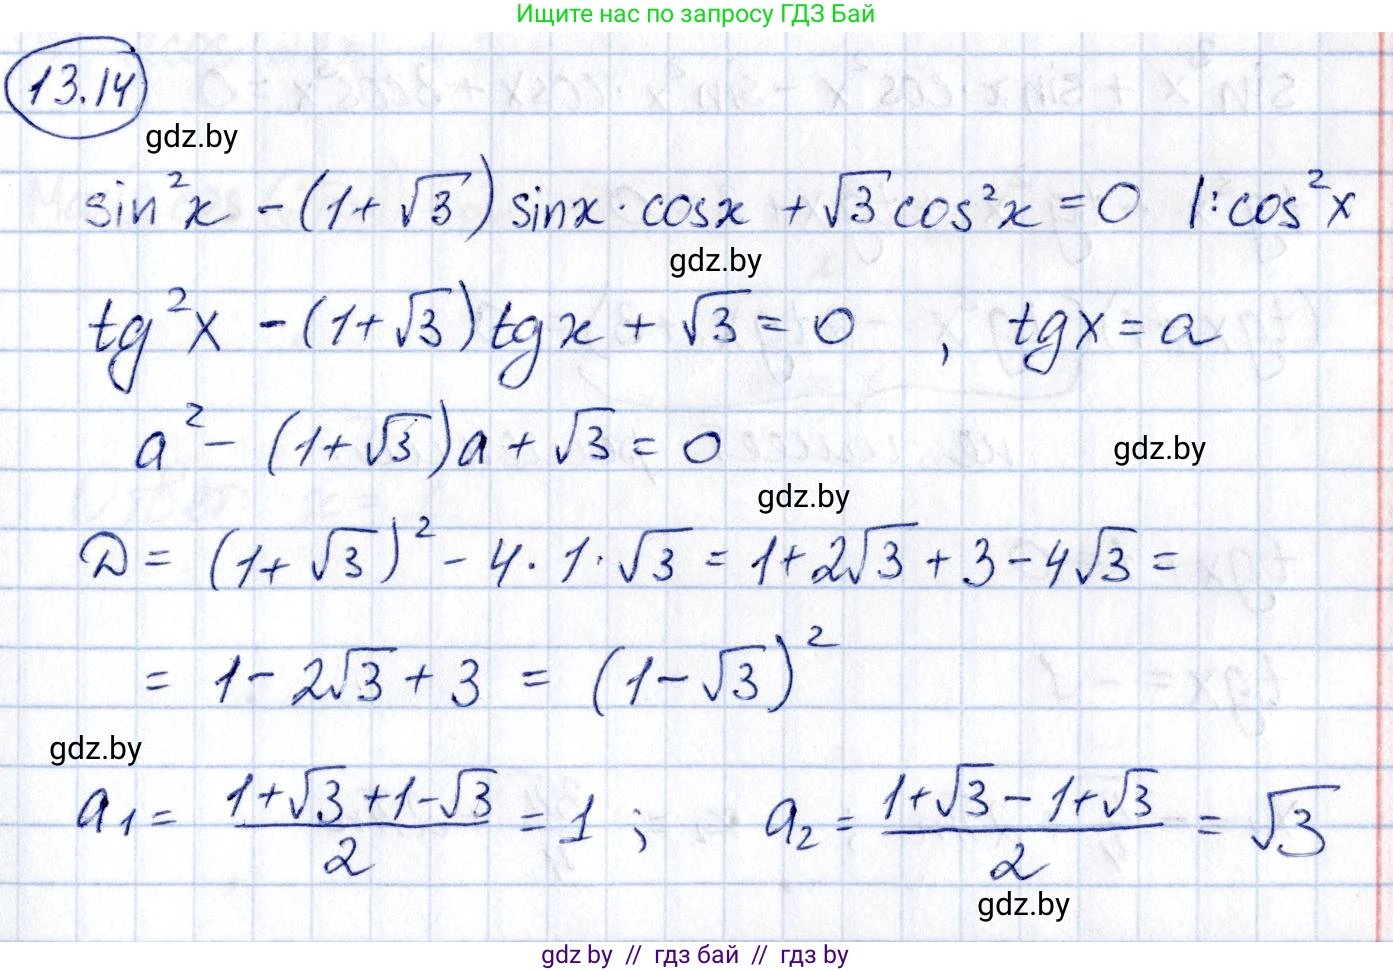 Ищите нас по запросу ГДЗ Бай
13.14
gdz.by
sin²x - (1+√3) sinx · cosx + √3 cos²x = 0 |: cos²x
gdz.by
tg²x - (1+√3) tgx + √3 = 0 , tgx = a
a² - (1+√3)a + √3 = 0
gdz.by
gdz.by
D = (1+√3)² - 4 · 1 · √3 = 1+2√3 + 3 - 4√3 =
= 1 - 2√3 + 3 = (1-√3)²
gdz.by
a₁ = (1+√3+1-√3)/2 = 1 ; a₂ = (1+√3-1+√3)/2 = √3
gdz.by
gdz by // гдз бай // gdz by